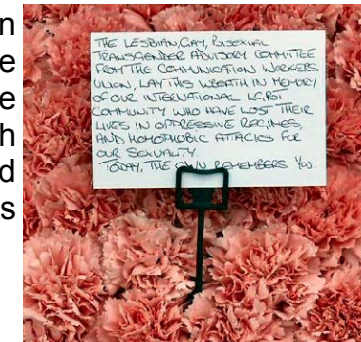 n
e
e
h
d
s
THE LESBIAN, GAY, BISEXUAL
TRANSGENDER ADVISORY COMMITTEE
FROM THE COMMUNICATION WORKERS
UNION, LAY THIS WREATH IN MEMORY
OF OUR INTERNATIONAL LGBT
COMMUNITY WHO HAVE LOST THEIR
LIVES IN OPPRESSIVE REGIMES,
AND HOMOPHOBIC ATTACKS FOR
OUR SEXUALITY.
TODAY, THE CWU REMEMBERS YOU.